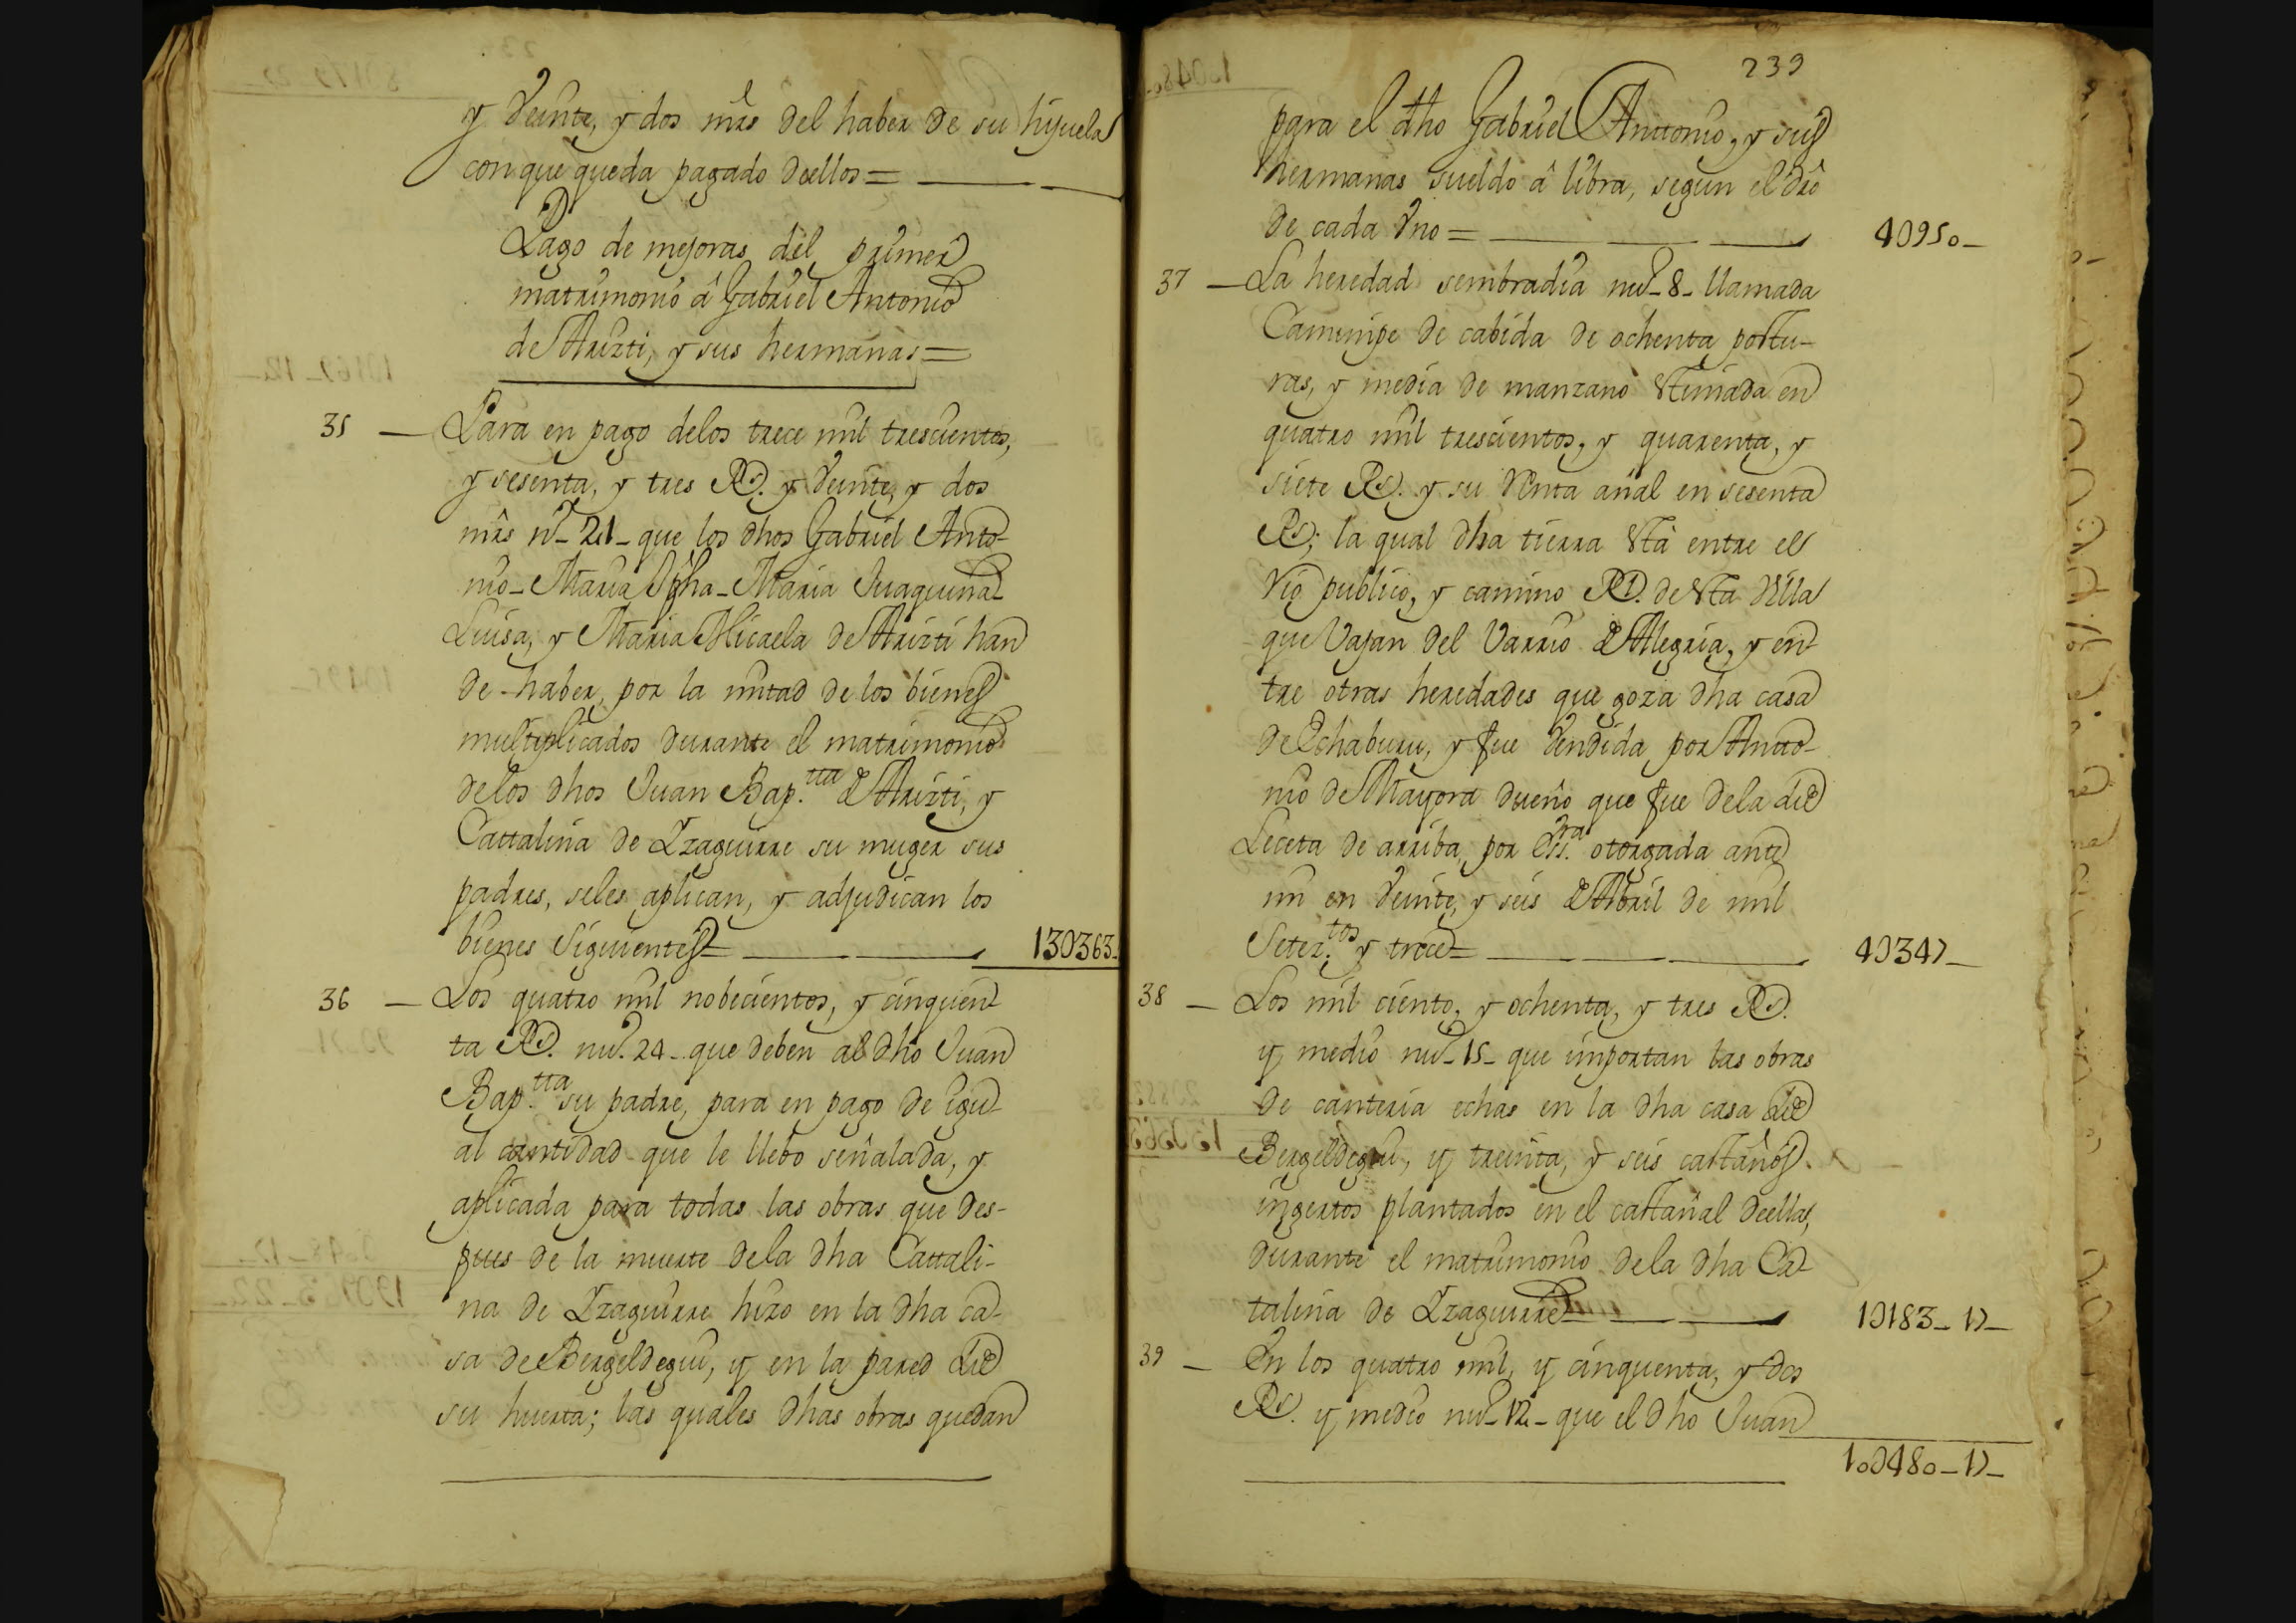 y Veinte, y dos mrs del haber de su hijuela
con que queda pagado dellos=
Pago de mejoras del primer
matrimonio â Gabriel Antonio
de Arizti, y sus hermanas=
35 — Para en pago delos trece mil trescientos,
y sesenta, y tres Rs. y Veinte, y dos
mrs nº-21- que los dhos Gabriel Anto-
nio-Maria Jpha-Maria Juaquina-
Luisa, y Maria Micaela de Arizti han
de haber, por la mitad de los bienes
multiplicados durante el matrimonio
delos dhos Juan Bap.tta de Arizti, y
Cattalina de Yzaguirre su muger sus
padres, seles aplican, y adjudican los
bienes Siguientes= 13U363-
36 — Los quatro mil nobecientos, y cinquen-
ta Rs. nuº.24- que deben al dho Juan
Bap.tta su padre, para en pago de igu-
al cantidad que le llebo señalada, y
aplicada para todas las obras que des-
pues de la muerte dela dha Cattali-
na de Yzaguirre hizo en la dha ca-
sa de Bergeldegui, y en la pared de
su huerta; las quales dhas obras quedan
239
para el dho Gabriel Antonio, y sus
hermanas sueldo â libra, segun el dro
de cada Vno= 4U950-
37 — La heredad sembradia nuº-8- llamada
Caminipe de cabida de ochenta postu-
ras, y media de manzano estimada en
quatro mil trescientos, y quarenta, y
siete Rs. y su Renta anal en sesenta
Rs; la qual dha tierra està entre el
rio publico, y camino Rl. de esta Villa
que Vajan del Varrio de Alegria, y en-
tre otras heredades que goza dha casa
de Echaburu, y fue Vendida por Anto-
nio de Mayora dueño que fue dela de
Leceta de arriba, por Ess.ra otorgada ante
mi en Veinte, y seis de Abril de mil
Setez.tos y trece= 4U347-
38 — Los mil ciento, y ochenta, y tres Rs.
y medio nuº-15- que importan las obras
de canteria echas en la dha casa de
Bergeldegui, y treinta, y seis castaños
ingertos plantados en el castañal della,
durante el matrimonio dela dha Ca-
talina de Yzaguirre= 1U183-17-
39 — En los quatro mil, y cinquenta, y dos
Rs. y medio nuº-12- que el dho Juan
10U480-17-